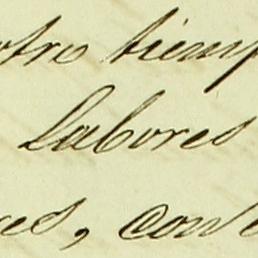 otro tiemp
labores
es, con